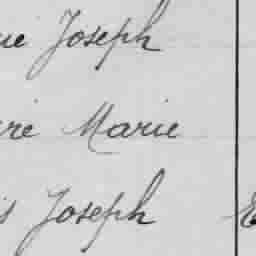 ue Joseph
ré Marie
is Joseph E